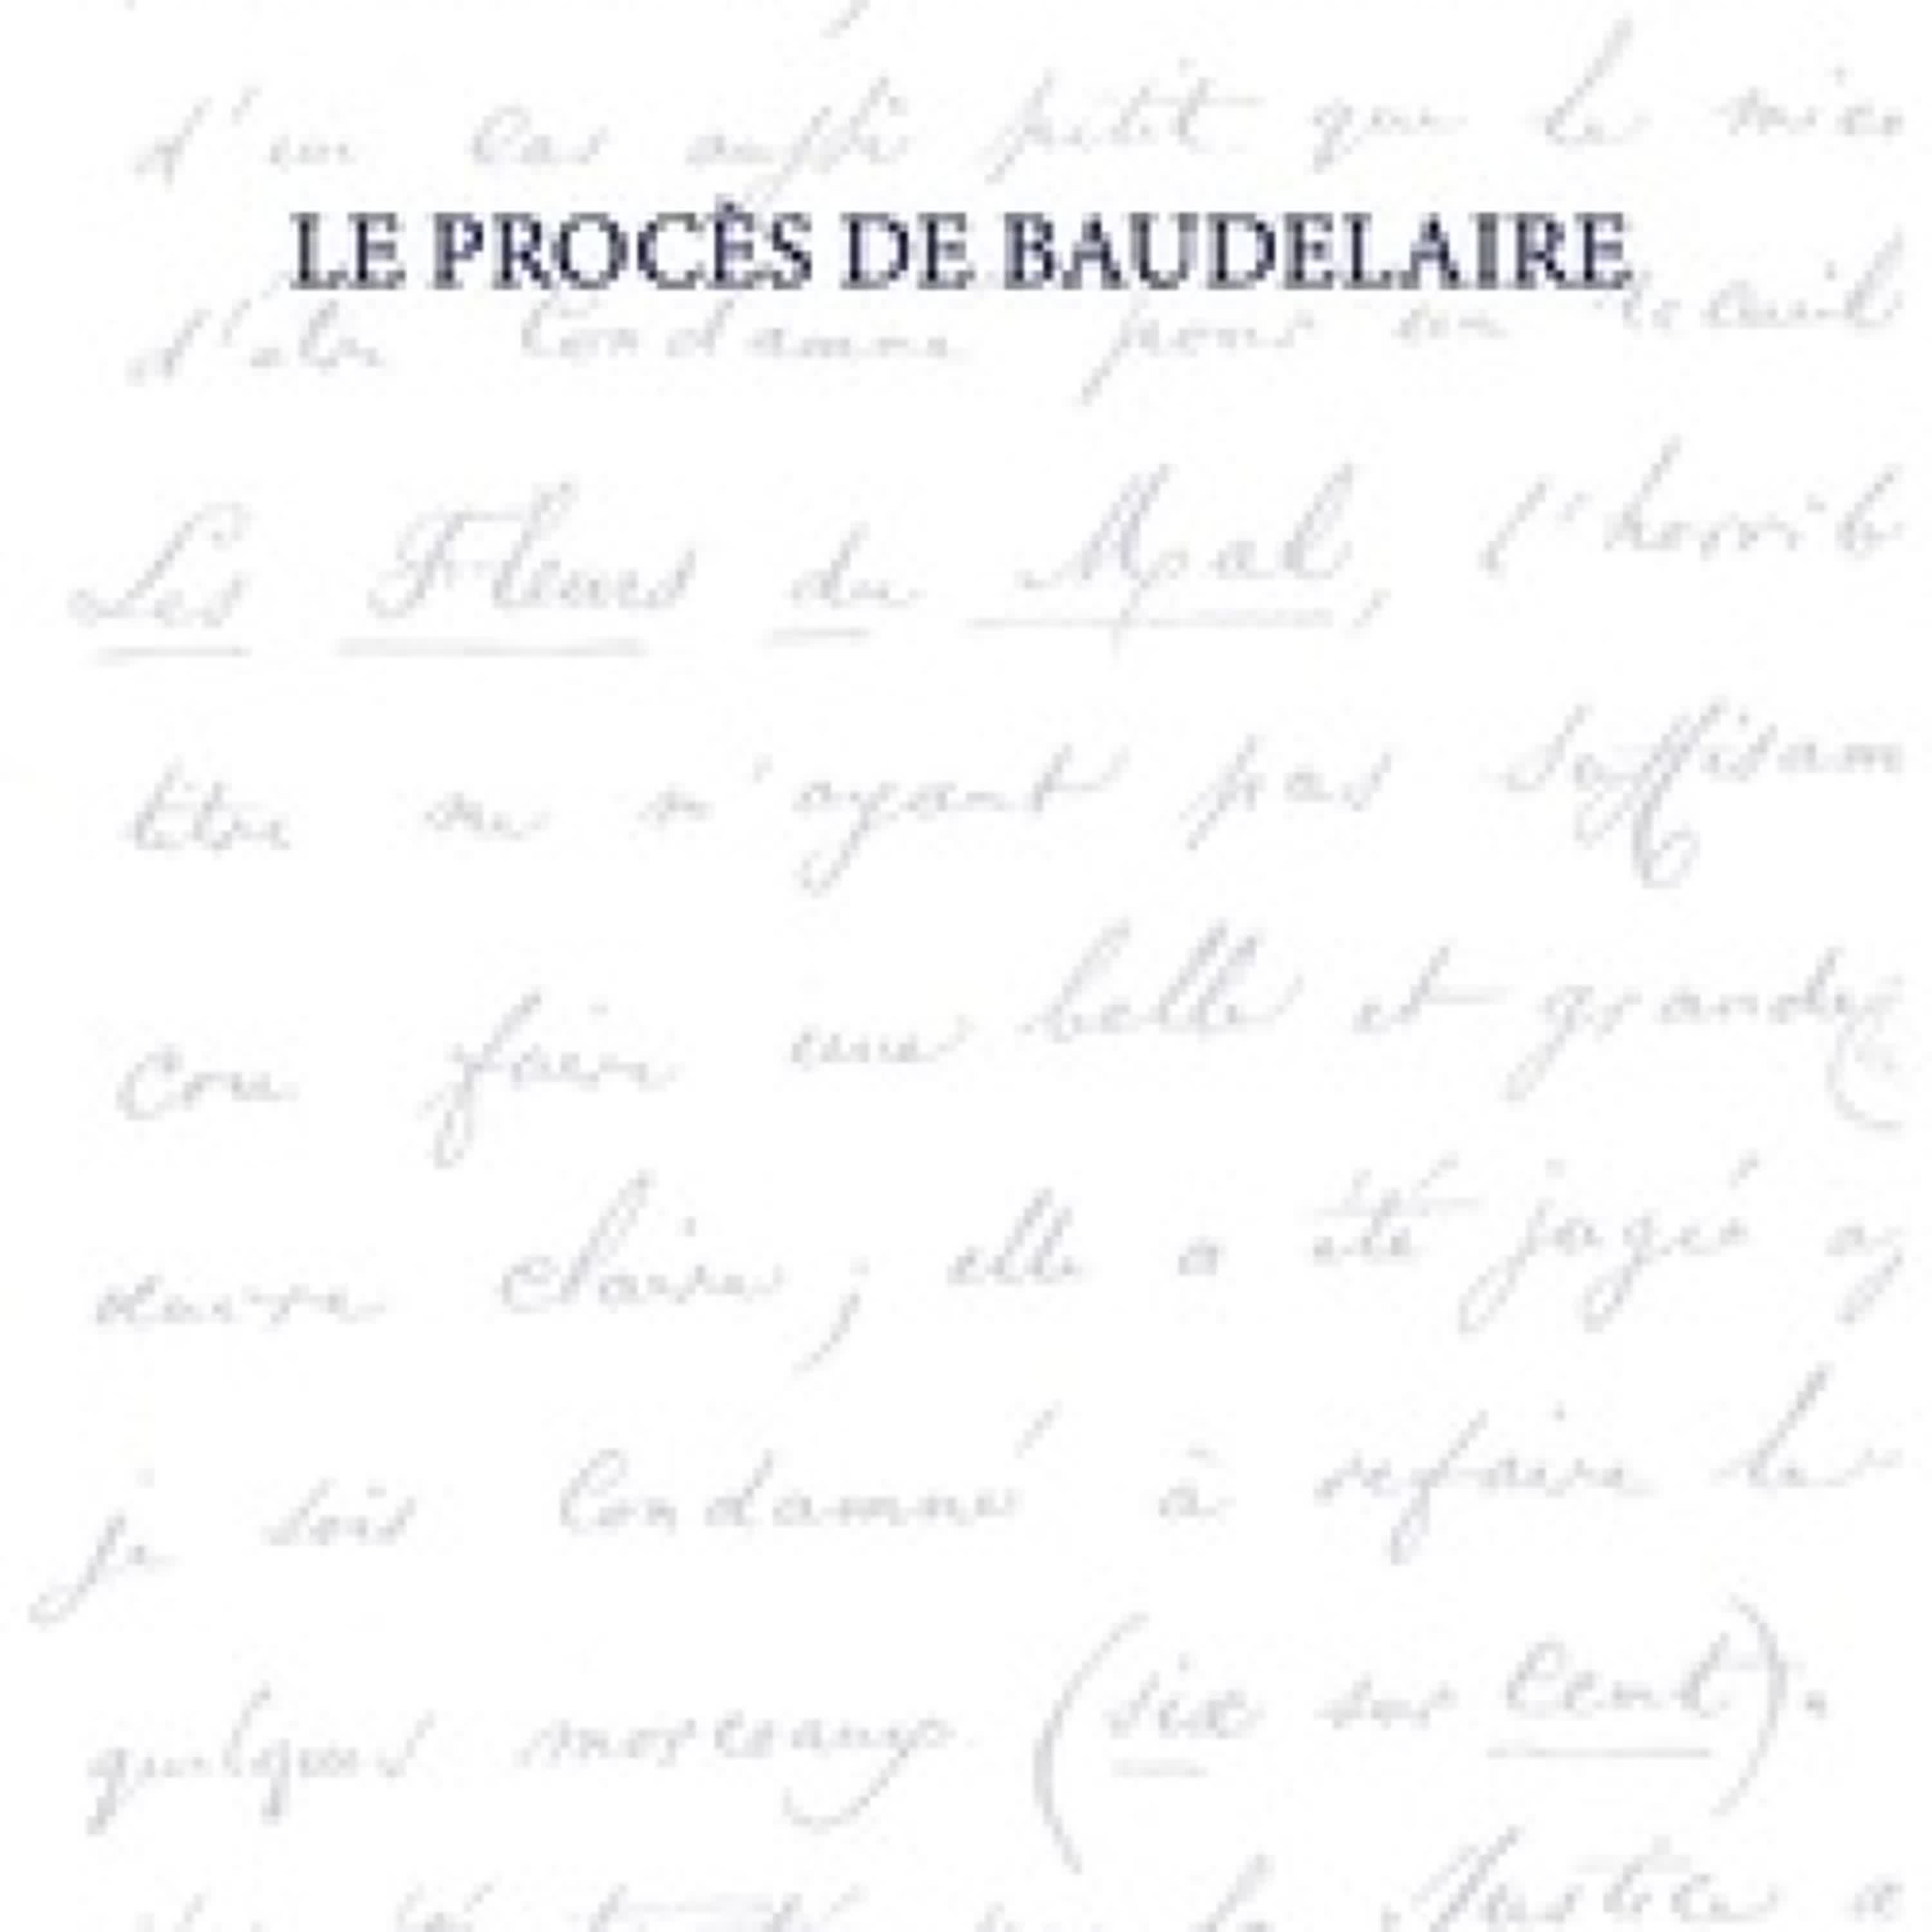 d'un cas aussi petit que le mien
LE PROCÈS DE BAUDELAIRE
d'être condamné pour un recueil
Les Fleurs du Mal, l'horrib
titre ne n'ayant pas suffisam
une belle et grande
claire; elle a été jugée
je sois condamné à refaire le
quelques morceaux (six sur cent).